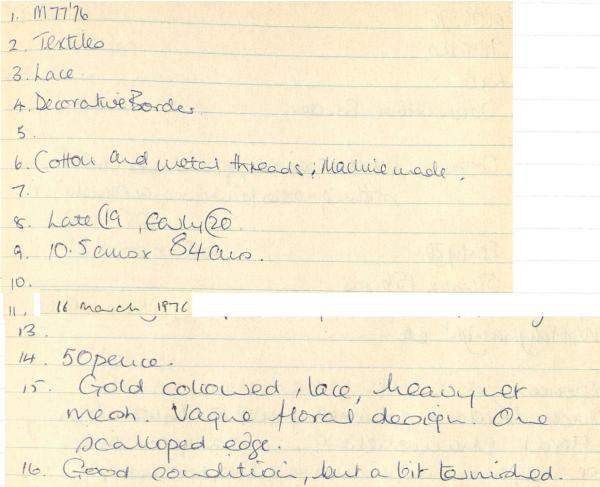 1. M77'76
2. Textiles
3. Lace.
4. Decorative Border.
5.
6. Cotton and metal threads; Machine made.
7.
8. Late C19, Early C20.
9. 10.5cms x 84cms.
10.
11. 16 March 1976
13.
14. 50pence.
15. Gold coloured, lace, heavy net
mesh. Vague floral design. One
scalloped edge.
16. Good condition, but a bit tarnished.